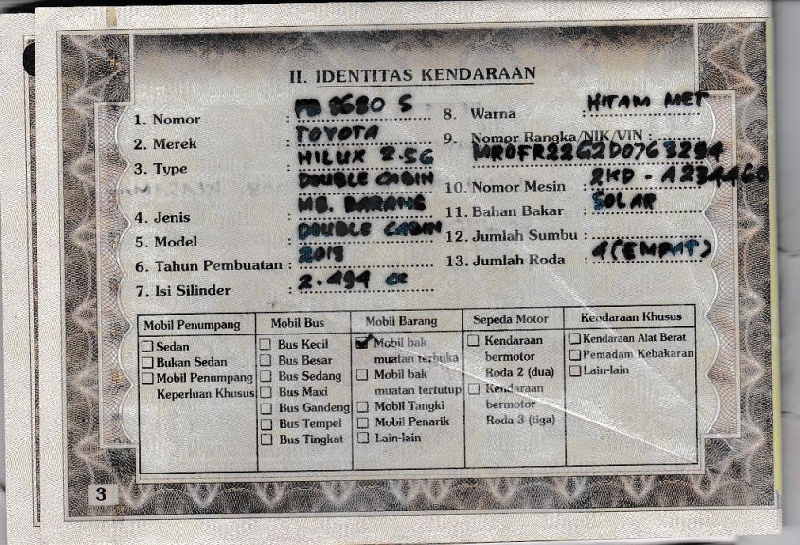 II. IDENTITAS KENDARAAN
1. Nomor : 8680 S
2. Merek : TOYOTA
3. Type : HILUX 2.5G
DOUBLE CABIN
4. Jenis : MB. BARANG
5. Model : DOUBLE CABIN
6. Tahun Pembuatan :
7. Isi Silinder : 2.494 CC
8. Warna : HITAM MET
9. Nomor Rangka/NIK/VIN :
10. Nomor Mesin :
11. Bahan Bakar : SOLAR
12. Jumlah Sumbu :
13. Jumlah Roda : 4 (EMPAT)
Mobil Penumpang
Sedan
Bukan Sedan
Mobil Penumpang
Keperluan Khusus
Mobil Bus
Bus Kecil
Bus Besar
Bus Sedang
Bus Maxi
Bus Gandeng
Bus Tempel
Bus Tingkat
Mobil Barang
Mobil bak
muatan terbuka
Mobil bak
muatan tertutup
Mobil Tangki
Mobil Penarik
Lain-lain
Sepeda Motor
Kendaraan
bermotor
Roda 2 (dua)
Kendaraan
bermotor
Roda 3 (tiga)
Kendaraan Khusus
Kendaraan Alat Berat
Pemadam Kebakaran
Lain-lain
3